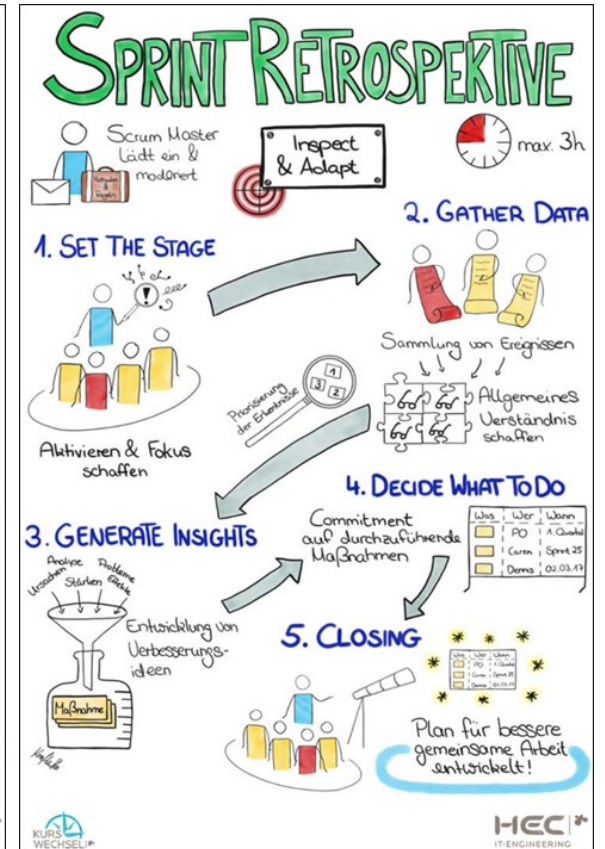 SPRINT RETROSPEKTIVE
Scrum Master
lädt ein &
moderiert
Methoden
&
Regeln
Inspect
& Adapt
max. 3h
1. SET THE STAGE
Aktivieren & Fokus
schaffen
2. GATHER DATA
Sammlung von Ereignissen
Allgemeines
Verständnis
schaffen
Priorisierung
der Erkentnisse
1
3 2
3. GENERATE INSIGHTS
Ursachen
Analyse
Stärken
Probleme
Effekte
Maßnahme
Entwicklung von
Verbesserungs-
ideen
4. DECIDE WHAT TO DO
Commitment
auf durchzuführende
Maßnahmen
Was Wer Wann
PO 1. Quartal
Caren Sprint 25
Dennis 02.03.17
5. CLOSING
Was Wer Wann
PO 1. Quartal
Caren Sprint 25
Dennis 02.03.17
Plan für bessere
gemeinsame Arbeit
entwickelt!
KURS
WECHSEL!
HEC
IT-ENGINEERING